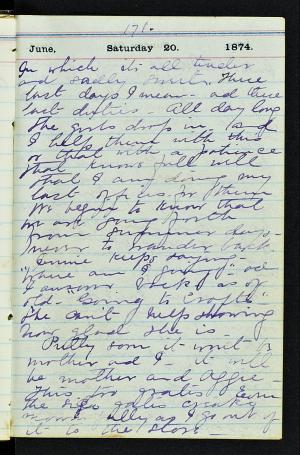 171.
June, Saturday 20. 1874.
In which it's all tender
and sadly sweet. These
last days I mean - and these
last duties. All day long
the girls drop in and
I help them with this
or that with patience
that knows full well
that I am doing my
last offices for them
We began to know that
we are going forth
from summer days
never to wander back
"Where am I going" and
I answer as of
old - "Going to Croffle"
She can't help showing
how glad she is -
Pretty soon it won't be
mother and I - it will
be mother and Aggie -
This for
the gates creaky
as I go out of
it to the store -